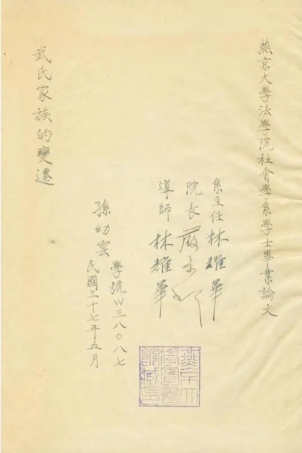 燕京大學法學院社會學系學士畢業論文
系主任 林耀華
院長
導師 林耀華
學號W三八〇八七
孫幼雲
民國三十七年五月
武氏家族的變遷